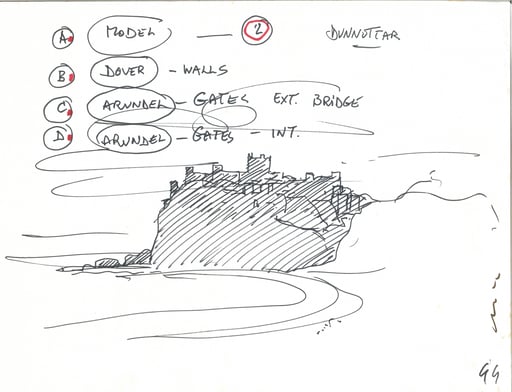 A. MODEL — 2 DUNNOTTAR
B DOVER - WALLS
C. ARUNDEL - GATES EXT. BRIDGE
D. ARUNDEL - GATES - INT.